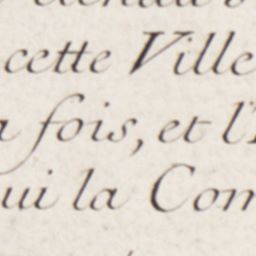 cette Ville
fois, et l'
ui la Com